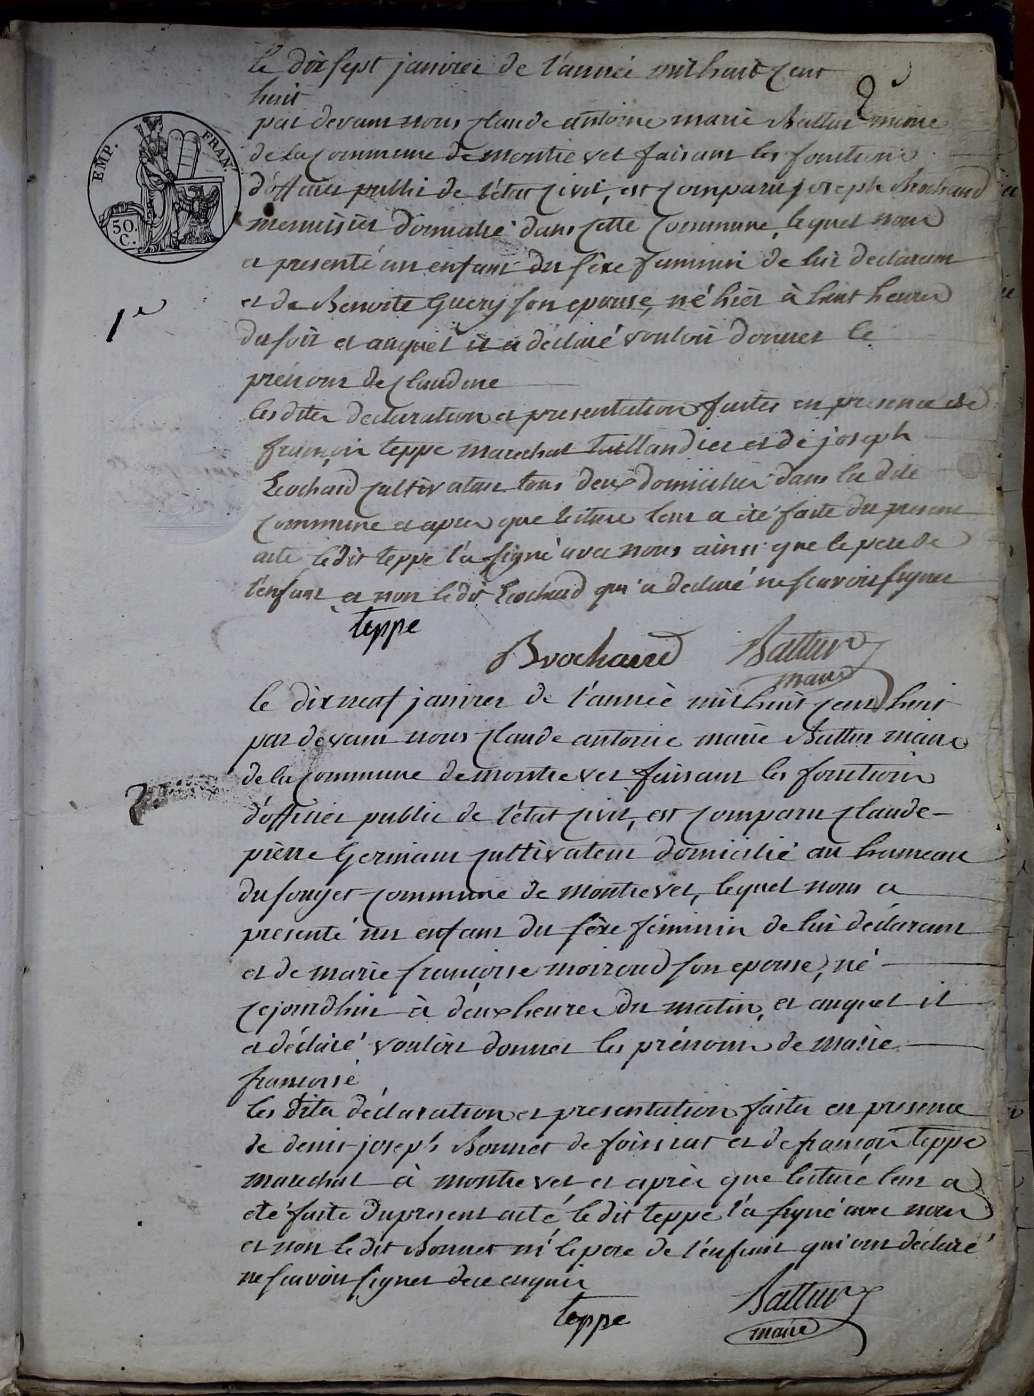 le dix sept janvier de l'année mil huit cent
huit
2e
par devant nous Claude antoine marie Battur maire
EMP. FRAN.
de la Commune de montrevet faisant les fonctions
d'officier public de l'état civil, est comparu joseph Brochand
50. C.
menuisier domicilié dans cette Commune, lequel nous
a presenté un enfant du sèxe feminin de lui declarant
et de Benoite Guery son epouse, né hièr à huit heures
1e
du soir et auquel il a déclaré vouloir donner le
prénom de Claudine
les dites declaration et presentation faites en presence de
françois teppe marechal taillandier et de joseph
Cochard cultivateur tous deux domiciliés dans la dite
Commune et apres que lecture leur a été faite du present
acte ledit teppe l'a signé avec nous ainsi que le pere de
l'enfant et non le dit Cochard qui a declaré ne scavoir signer
teppe
Brochand Battur
maire
le dix neuf janvier de l'année mil huit cent huit
par devant nous Claude antoine marie Battur maire
de la Commune de montrevet faisant les fonctions
2
d'officier public de l'état civil, est comparu Claude-
pierre Germain cultivateur domicilié au hameau
du fouget Commune de montrevet, lequel nous a
presenté un enfant du sèxe féminin de lui déclarant
et de marie françoise moiroud son epouse, né
cejourdhui à deux heures du matin, et auquel il
a déclaré vouloir donner les prénoms de marie
francoise
les dites déclaration et presentation faites en presence
de denis joseph Bonnet de foissiat et de françois teppe
marechal à montrevet et après que lecture leur a
été faite du present acte, le dit teppe l'a signé avec nous
et non le dit Bonnet ni le pere de l'enfant qui ont déclaré
ne scavoir signer de ce enquis
teppe Battur
maire